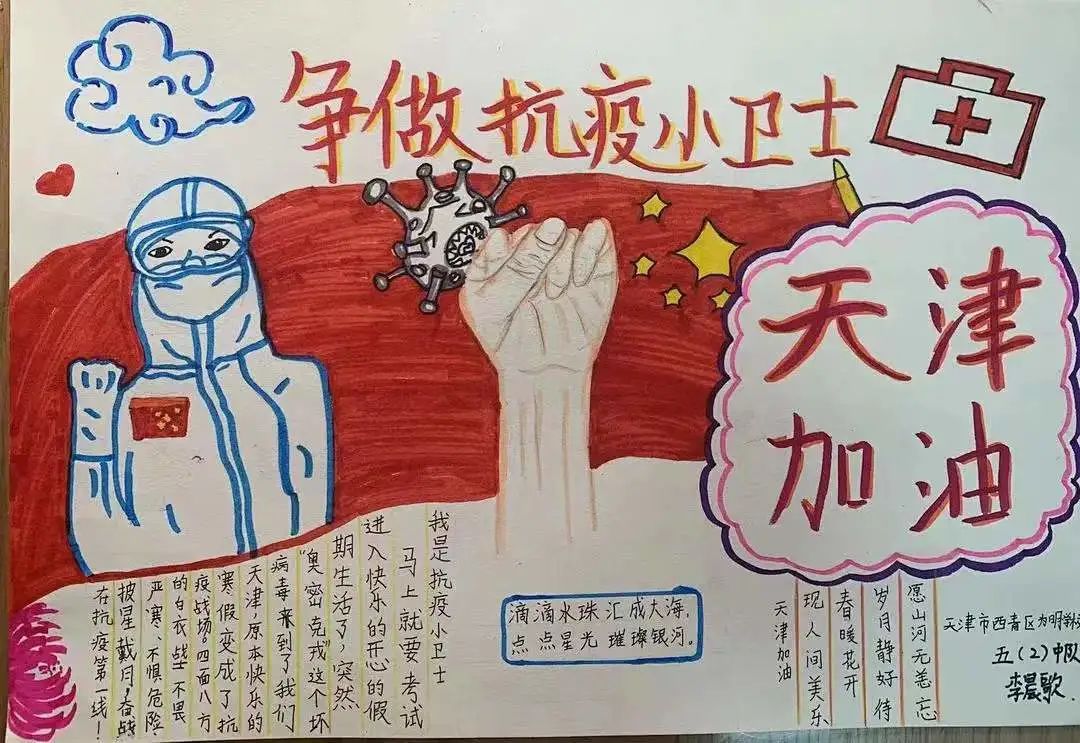 争做抗疫小卫士
天津
加油
我是抗疫小卫士
马上就要考试
进入快乐的的假
期生活了,突然
"奥密克戎"这个坏
病毒来到了我们
天津原本快乐的
寒假变成了抗
疫战场。四面八方
的白衣战士不畏
严寒、不惧危险
披星戴月,奋战
在抗疫第一线!
滴滴水珠汇成大海,
点点星光璀璨银河。
愿山河无恙忘
岁月静好待
春暖花开
现人间美乐
天津加油
天津市西青区为明学
五(2)中队
李晨歌